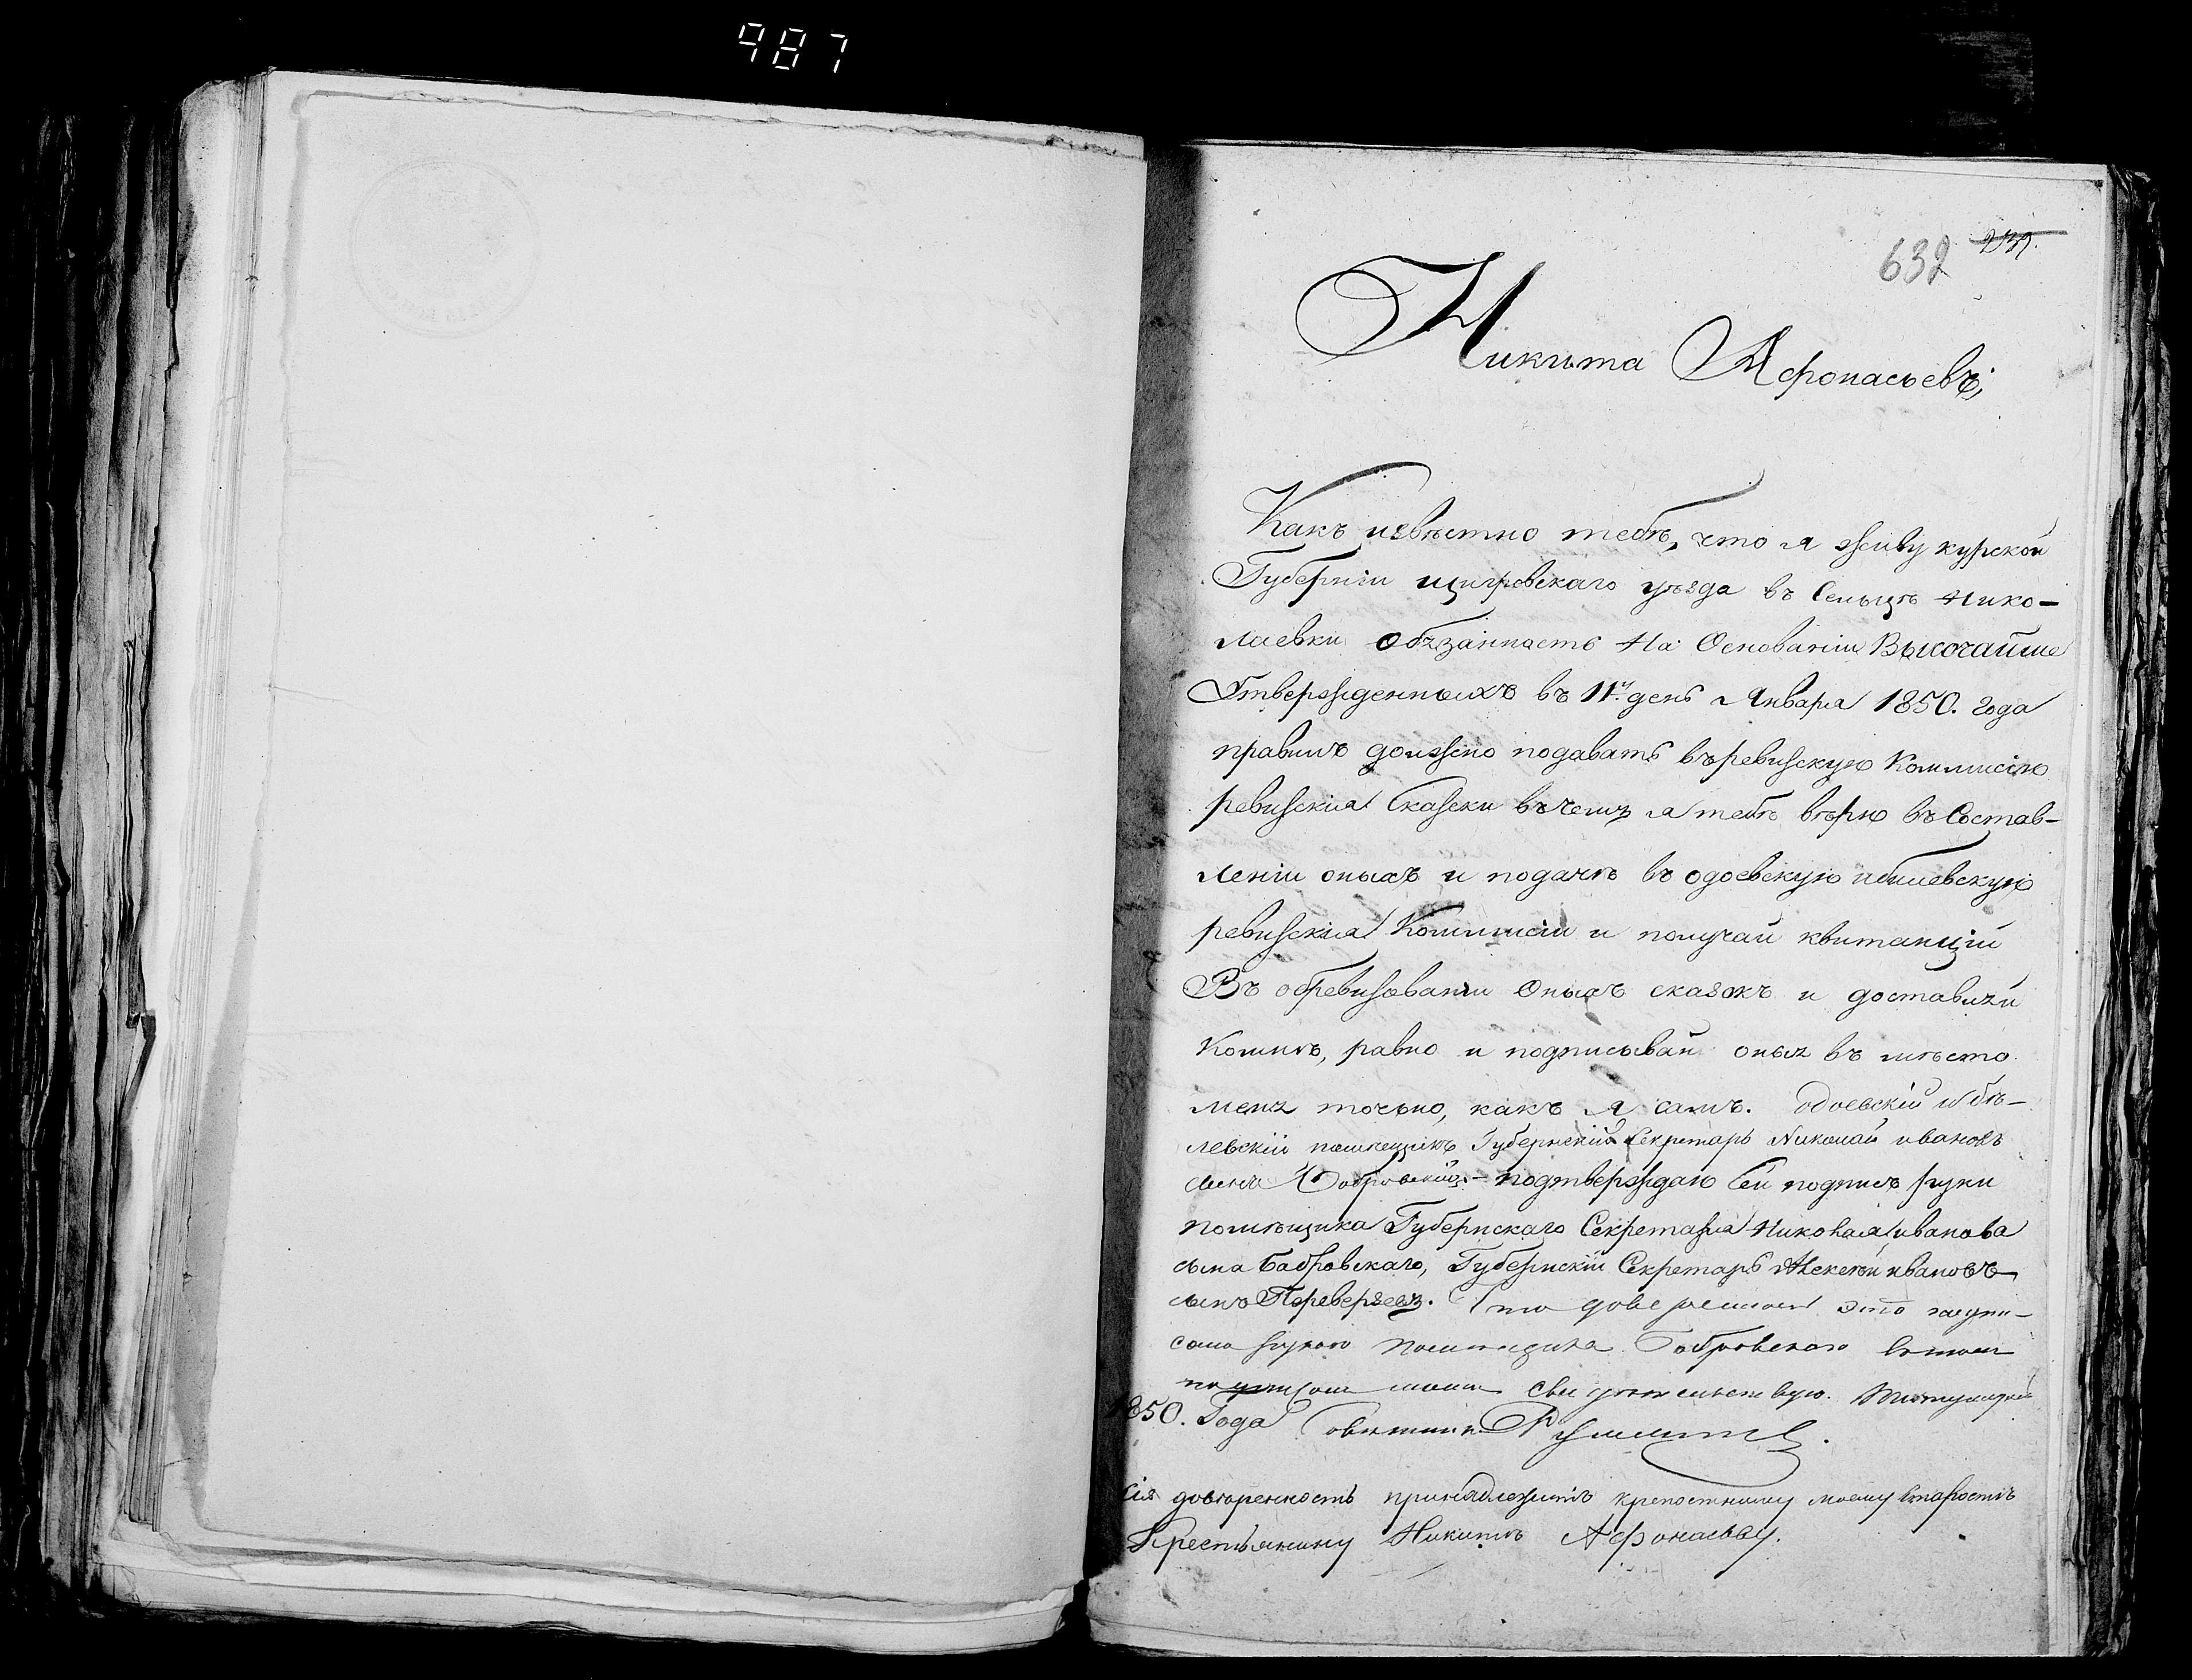 987
632 239.
Никита Афонасьевъ;
Какъ извѣстно тебѣ, что я живу курской
Губерніи щигровскаго уѣзда въ Сельцѣ Нико-
лаевки обязанность На Основаніи Высочайше
Утвержденныхъ въ 11й день Января 1850. года
правилъ должно подавать въ ревизскую Коммисію
ревизскія Сказки въ чемъ я тебѣ вѣрю въ Состав-
леніи оныхъ и подачѣ въ одоевскую ибѣлевскую
ревизскія Коммисіи и получай квитанціи
Въ обревизованіи Оныхъ сказокъ и доставляй
Комнѣ, равно и подписывай оныя въ мѣсто
меня точьно, какъ я самъ. Одоевскій и бѣ-
левскій помѣщикъ Губернскій Секретарь Николай ивановъ
сынъ Бобровский - подтверждаю Сей подпись руки
помѣщика Губернскаго Секретаря Николая иванова
сына Бабровскаго, Губернскій Секретарь Алексѣй ивановъ
сынъ Переверзевъ. Что доверенность это подпи-
сана рукою Помещика Бобровскаго в томъ
свидетельствую.
1850. Года
Сія довѣренность принадлежитъ крепостному моему Старостѣ
Крестьянину Никитѣ Афонасьеву.